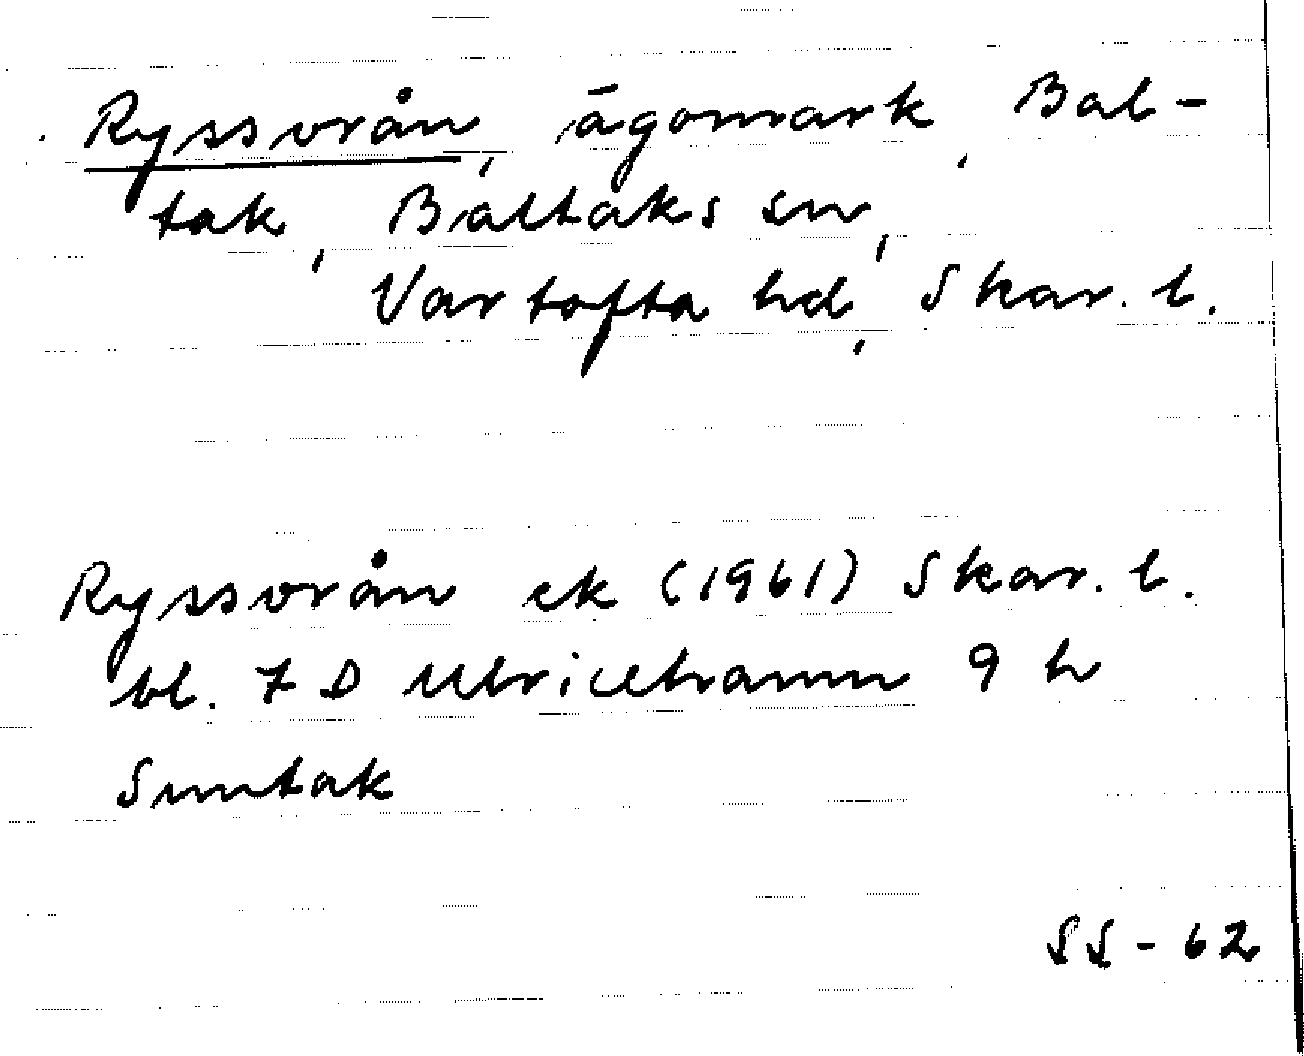 Ryssvrån, ägomark, Bal-
tak, Baltaks sn,
Vartofta hd, Skar. l.
Ryssvrån ek (1961) Skar. l.
bl. 7 D Ulricehamn 9 h
Suntak
SS-62